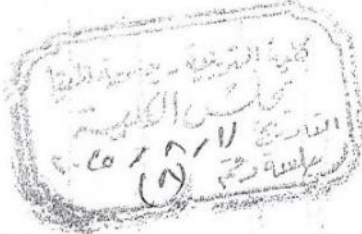 كلية التربية - جامعة المنيا
مجلس الكلية
التاريخ ١١ / ٨ /
جلسة رقم (٨)